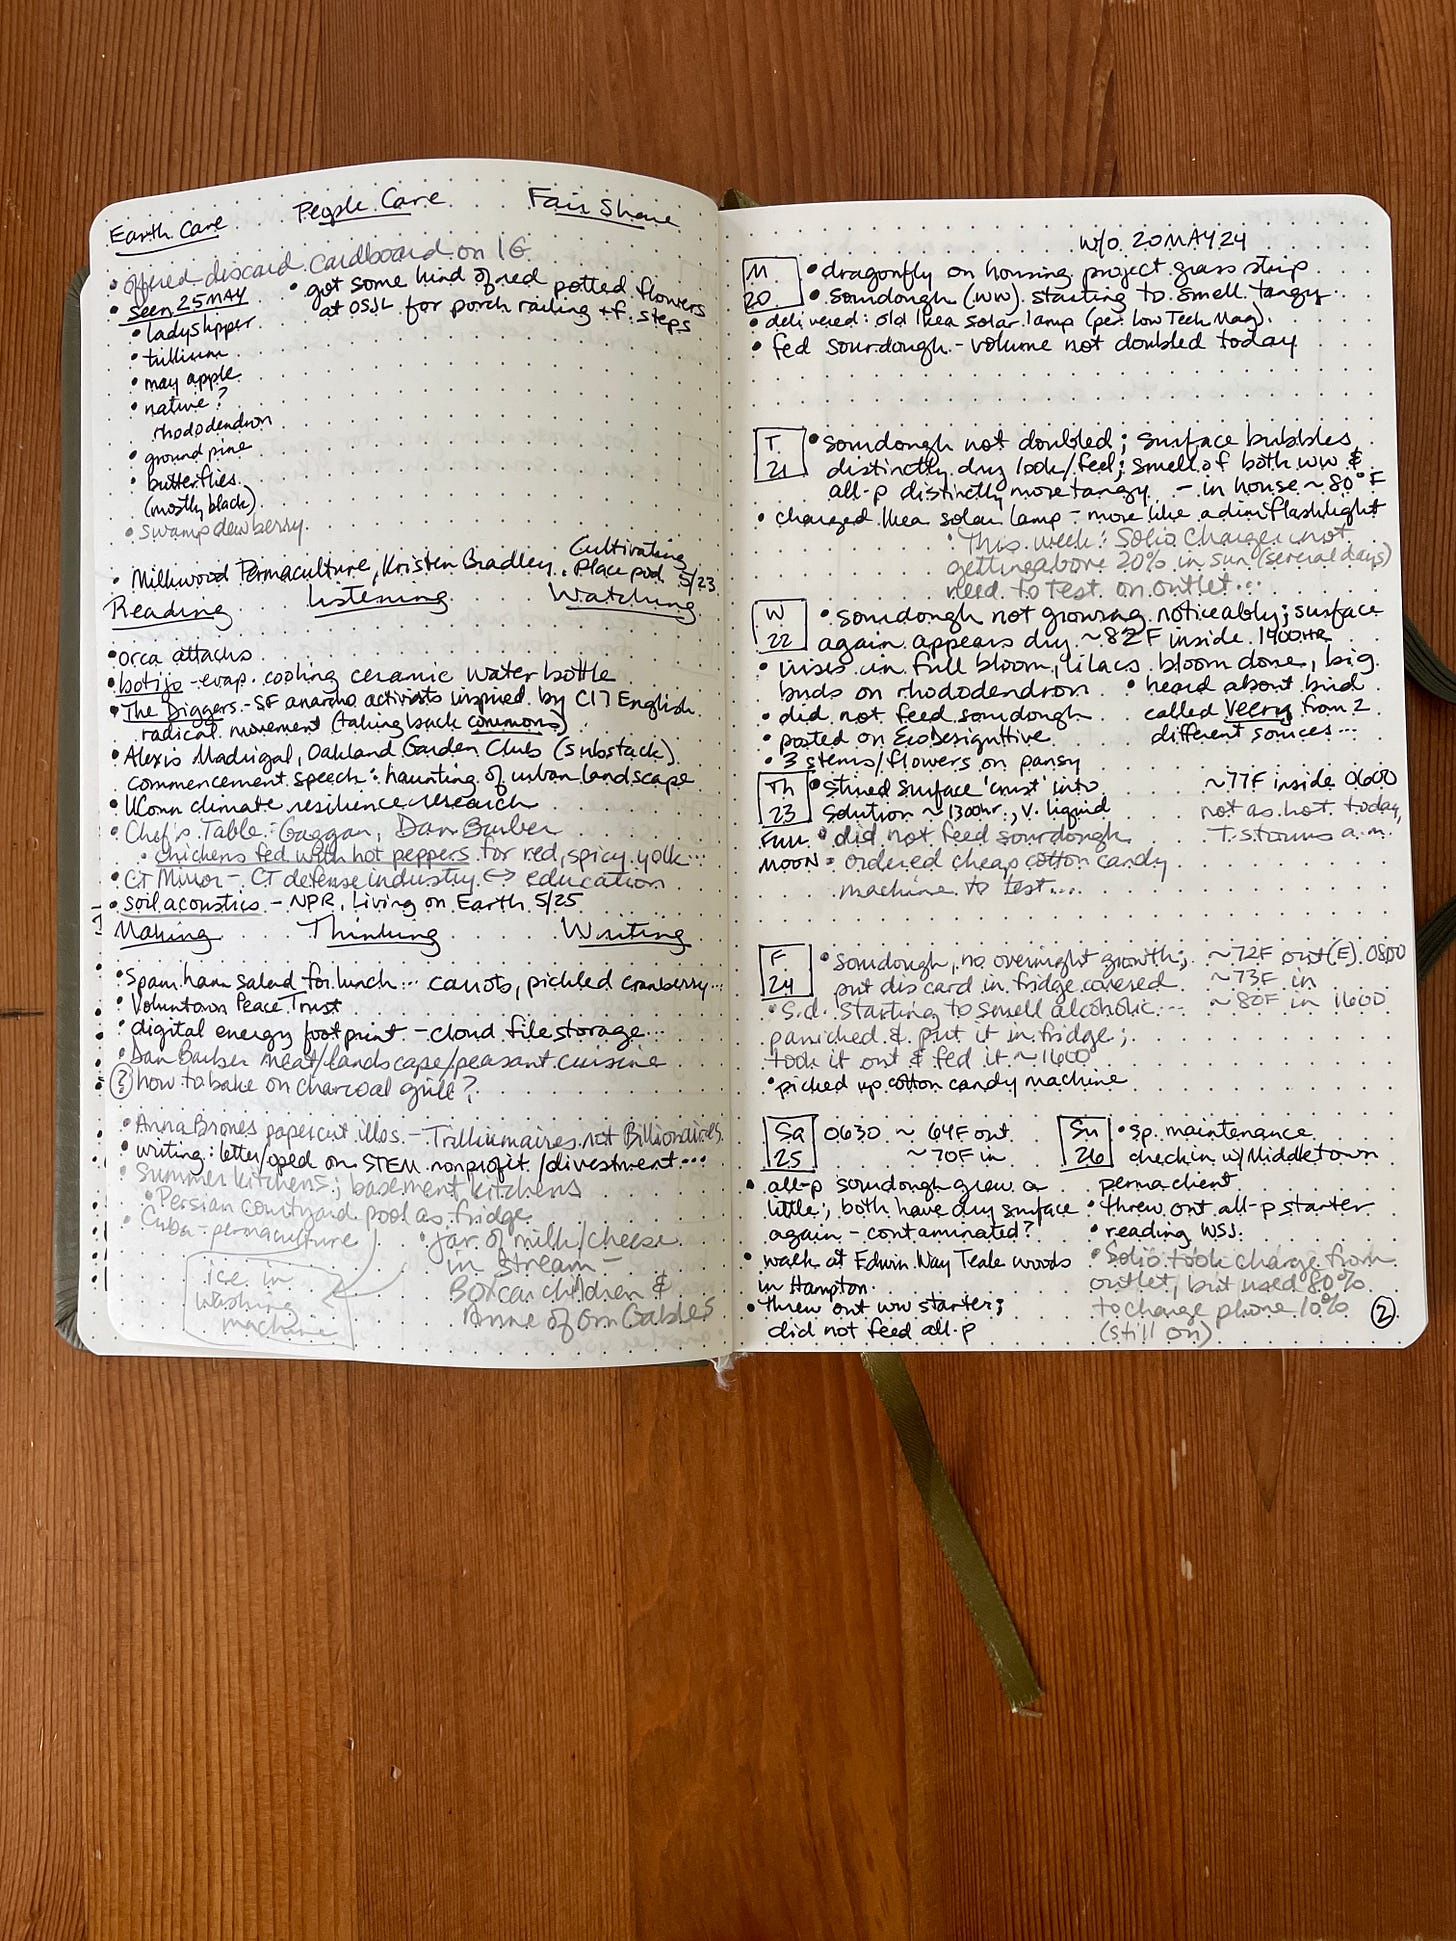 Earth Care People Care Fair Share
• offered discard cardboard on IG
• seen 25 MAY
• ladyslipper
• trillium
• may apple
• native?
rhododendron
• ground pine
• butterflies
(mostly black)
• swamp dewberry
• got some kind of red potted flowers
at OSJL for porch railing + f. steps
• Milkwood Permaculture, Kirsten Bradley, Cultivating
Place pod 5/23
Reading Listening Watching
• orca attacks
• botijo - evap. cooling ceramic water bottle
• The Diggers - SF anarcho activists inspired by C17 English
radical movement (taking back commons)
• Alexis Madrigal, Oakland Garden Club (substack)
commencement speech: haunting of urban landscape
• UConn climate resilience research
• Chef's Table: Gaggan, Dan Barber
• chickens fed with hot peppers for red, spicy yolk...
• CT Mirror - CT defense industry ↔ education
• soil acoustics - NPR, Living on Earth 5/25
Making Thinking Writing
• Spam ham salad for lunch... carrots, pickled cranberry...
• Voluntown Peace Trust
• digital energy footprint - cloud file storage...
• Dan Barber meat/landscape/peasant cuisine
? how to bake on charcoal grill?
• Anna Brones papercut illos. - Trilliumaires not Billionaires
• writing: letter/oped on STEM nonprofit/divestment...
• Summer kitchens; basement kitchens
• Persian courtyard pool as fridge
• Cuba - permaculture
• jar of milk/cheese
in stream -
Boxcar children &
Anne of Grn Gables
ice in
washing
machine
w/o 20 MAY 24
M
20
• dragonfly on housing project grass strip
• sourdough (ww) starting to smell tangy
• delivered: old Ikea solar lamp (per Low Tech Mag)
• fed sourdough - volume not doubled today
T
21
• sourdough not doubled; surface bubbles
distinctly dry look/feel; smell of both ww &
all-p distinctly more tangy - in house ~80°F
• charged Ikea solar lamp - more like a dim flashlight
• This week: Solio Charger not
getting above 20% in sun (several days)
need to test on outlet...
W
22
• sourdough not growing noticeably; surface
again appears dry ~82F inside 1400HR
• irises in full bloom, lilacs bloom done, big
buds on rhododendron
• heard about bird
called Veery from 2
different sources...
• did not feed sourdough
• posted on EcoDesignHive
• 3 stems/flowers on pansy
Th
23
FULL
MOON
• stirred surface 'crust' into
solution ~1300hr., v. liquid
• did not feed sourdough
• ordered cheap cotton candy
machine to test...
~77F inside 0600
not as hot today,
T. storms a.m.
F
24
• sourdough, no overnight growth;
put discard in fridge covered
• s.d. starting to smell alcoholic...
panicked & put it in fridge;
took it out & fed it ~1600
• picked up cotton candy machine
~72F out (E) 0800
~73F in
~80F in 1600
Sa
25
0630 ~ 64F out
~ 70F in
• all-p sourdough grew a
little; both have dry surface
again - contaminated?
• walk at Edwin Way Teale woods
in Hampton
• threw out ww starter;
did not feed all-p
Su
26
• sp. maintenance
checkin w/Middletown
permaclient
• threw out all-p starter
• reading WSJ
• Solio took charge from
outlet, but used 80%
to charge phone 10%
(still on)
2